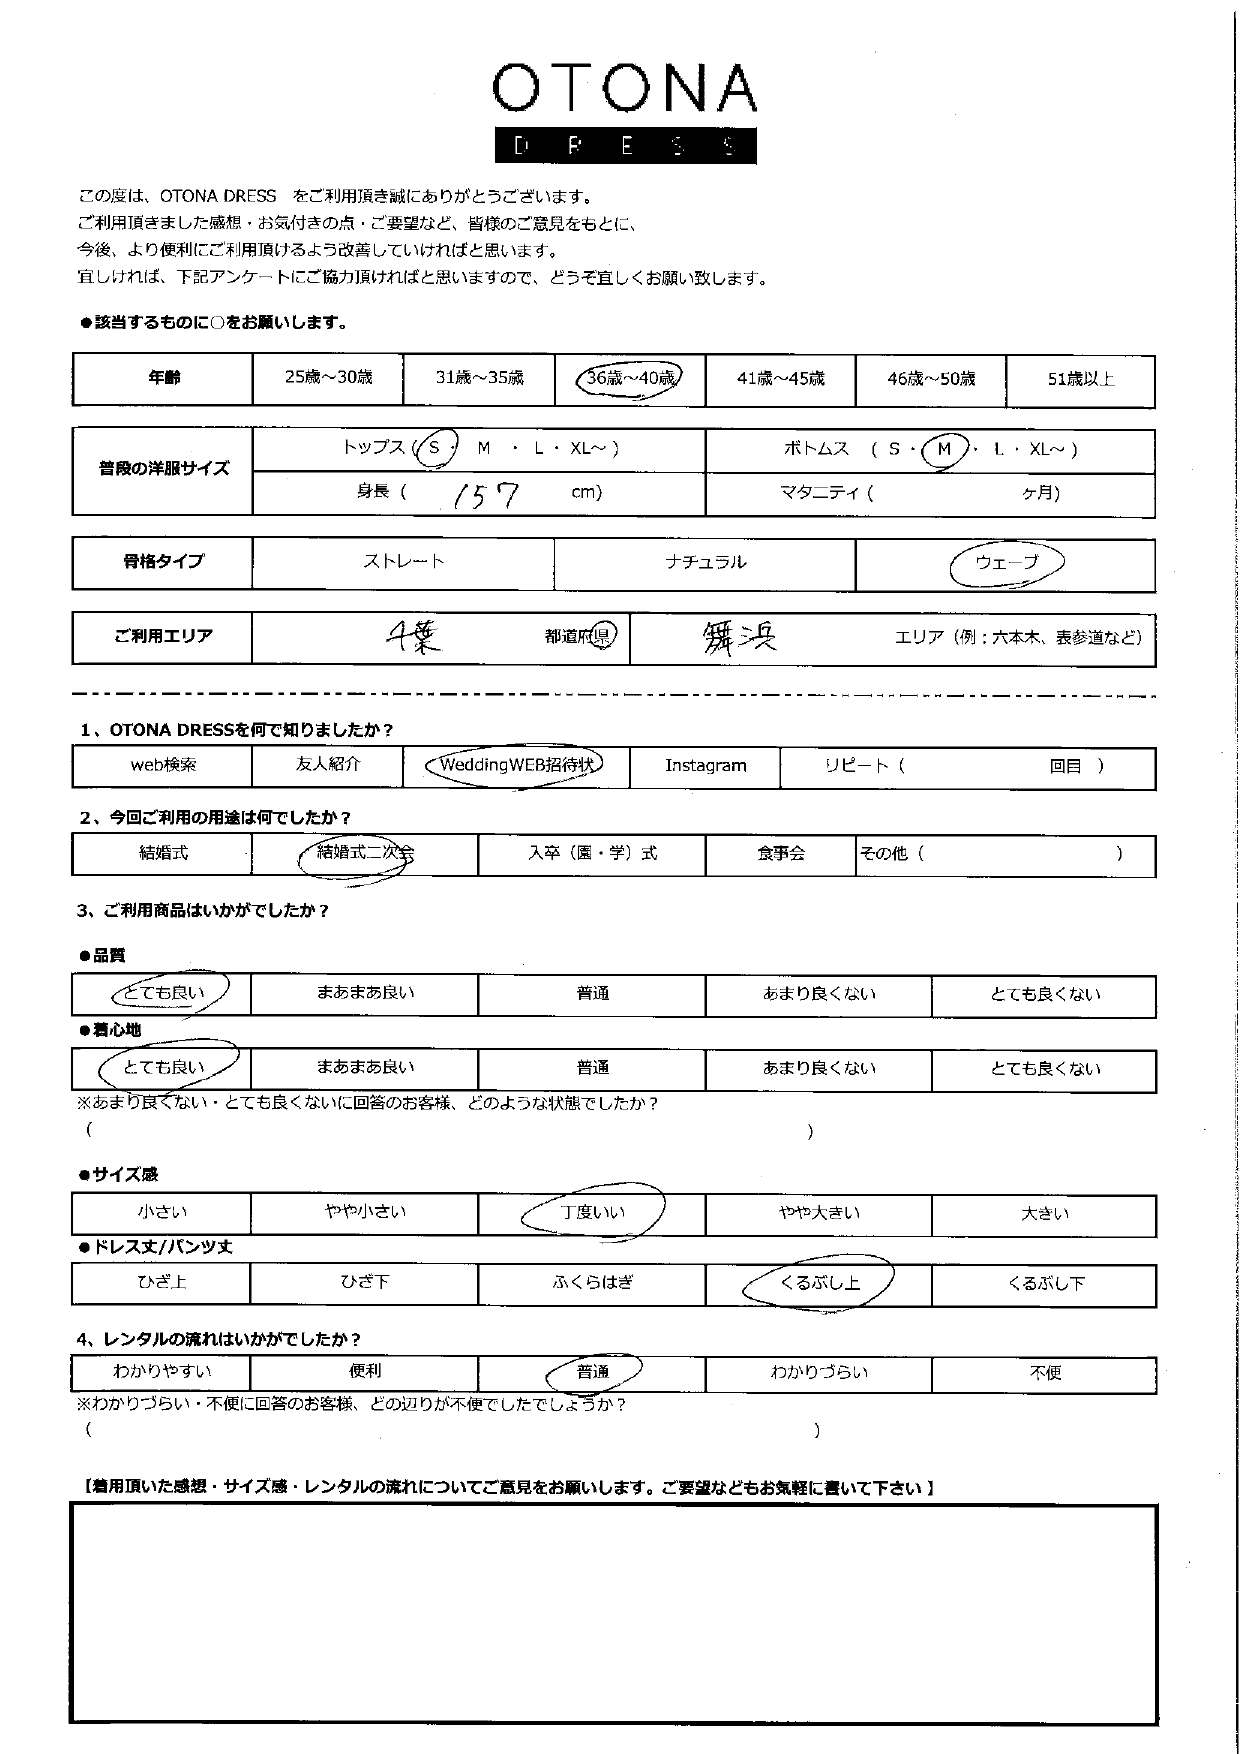 OTONA
DRESS
この度は、OTONA DRESS をご利用頂き誠にありがとうございます。
ご利用頂きました感想・お気付きの点・ご要望など、皆様のご意見をもとに、
今後、より便利にご利用頂けるよう改善していければと思います。
宜しければ、下記アンケートにご協力頂ければと思いますので、どうぞ宜しくお願い致します。
●該当するものに○をお願いします。
年齢 25歳～30歳 31歳～35歳 36歳～40歳 41歳～45歳 46歳～50歳 51歳以上
普段の洋服サイズ トップス ( S ・ M ・ L ・ XL～ ) ボトムス ( S ・ M ・ L ・ XL～ )
身長 ( 157 cm) マタニティ ( ヶ月)
骨格タイプ ストレート ナチュラル ウェーブ
ご利用エリア 千葉 都道府県 舞浜 エリア（例：六本木、表参道など）
1、OTONA DRESSを何で知りましたか？
web検索 友人紹介 WeddingWEB招待状 Instagram リピート ( 回目 )
2、今回ご利用の用途は何でしたか？
結婚式 結婚式二次会 入卒（園・学）式 食事会 その他 ( )
3、ご利用商品はいかがでしたか？
●品質
とても良い まあまあ良い 普通 あまり良くない とても良くない
●着心地
とても良い まあまあ良い 普通 あまり良くない とても良くない
※あまり良くない・とても良くないに回答のお客様、どのような状態でしたか？
( )
●サイズ感
小さい やや小さい 丁度いい やや大きい 大きい
●ドレス丈/パンツ丈
ひざ上 ひざ下 ふくらはぎ くるぶし上 くるぶし下
4、レンタルの流れはいかがでしたか？
わかりやすい 便利 普通 わかりづらい 不便
※わかりづらい・不便に回答のお客様、どの辺りが不便でしたでしょうか？
( )
【着用頂いた感想・サイズ感・レンタルの流れについてご意見をお願いします。ご要望などもお気軽に書いて下さい 】